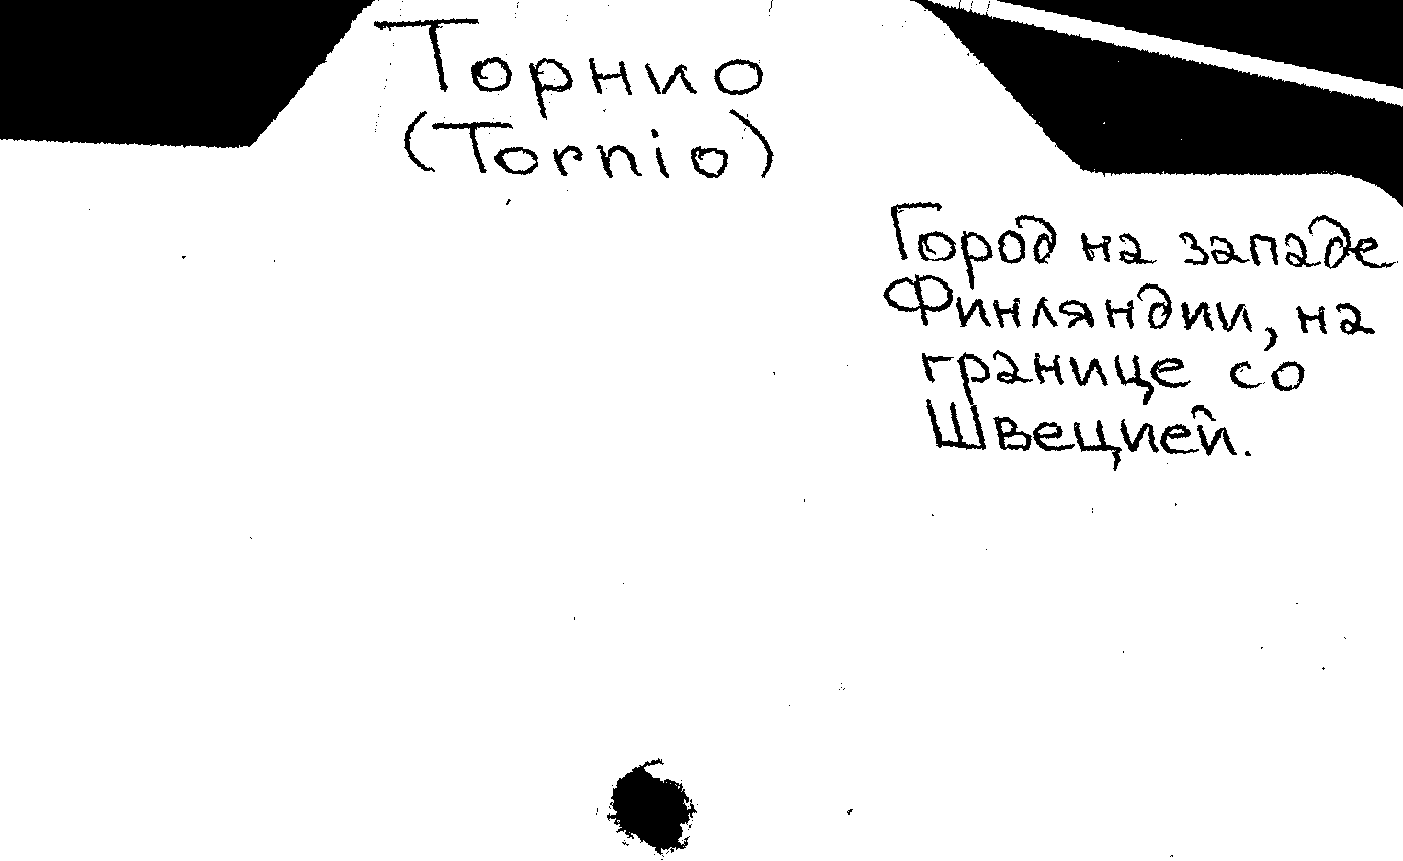 Торнио
(Tornio)
Город на западе
Финляндии, на
границе со
Швецией.